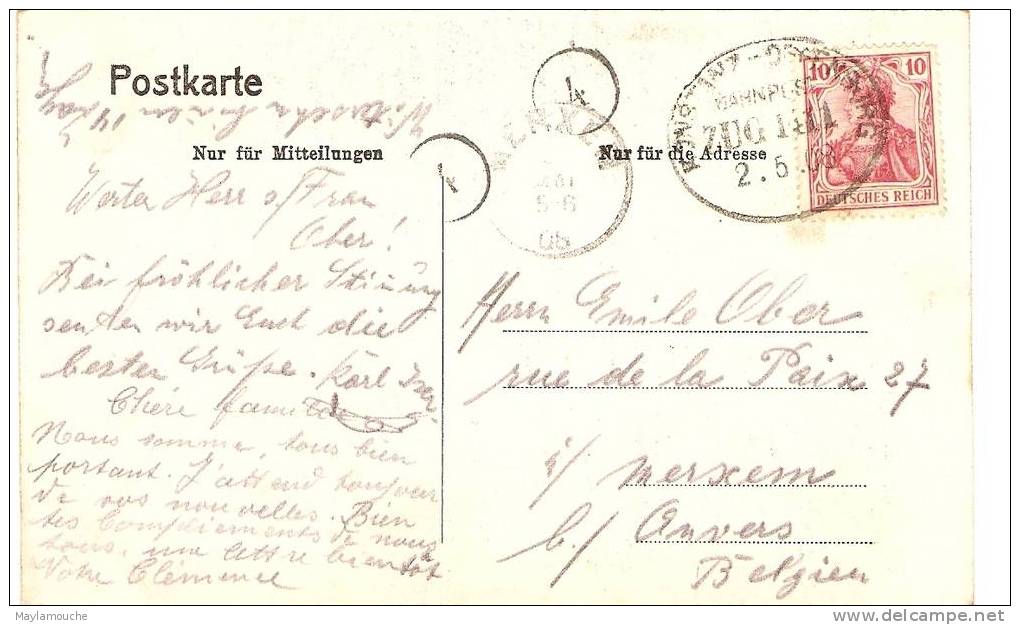 Postkarte
Nur für Mitteilungen
Nur für die Adresse
4
4
BAHNPOST
ZUG 1411
2.5.08
MERXEM
MAI
5-6
08
10 10
DEUTSCHES REICH
Werter Herr &
Frau
Ober!
Bei fröhlicher Stimung
senden wir Euch die
besten Grüße. Karl
Chère famille
Nous somme, tous bien
portant. J'attend toujour
de vos nouvelles. Bien
des Compliements de nous
tous, une lettre bientôt
Votre Clémence
Herrn Emile Ober
rue de la Paix 27
i/ Merxem
b/ Anvers
Belgien
Maylamouche
delcampe.net